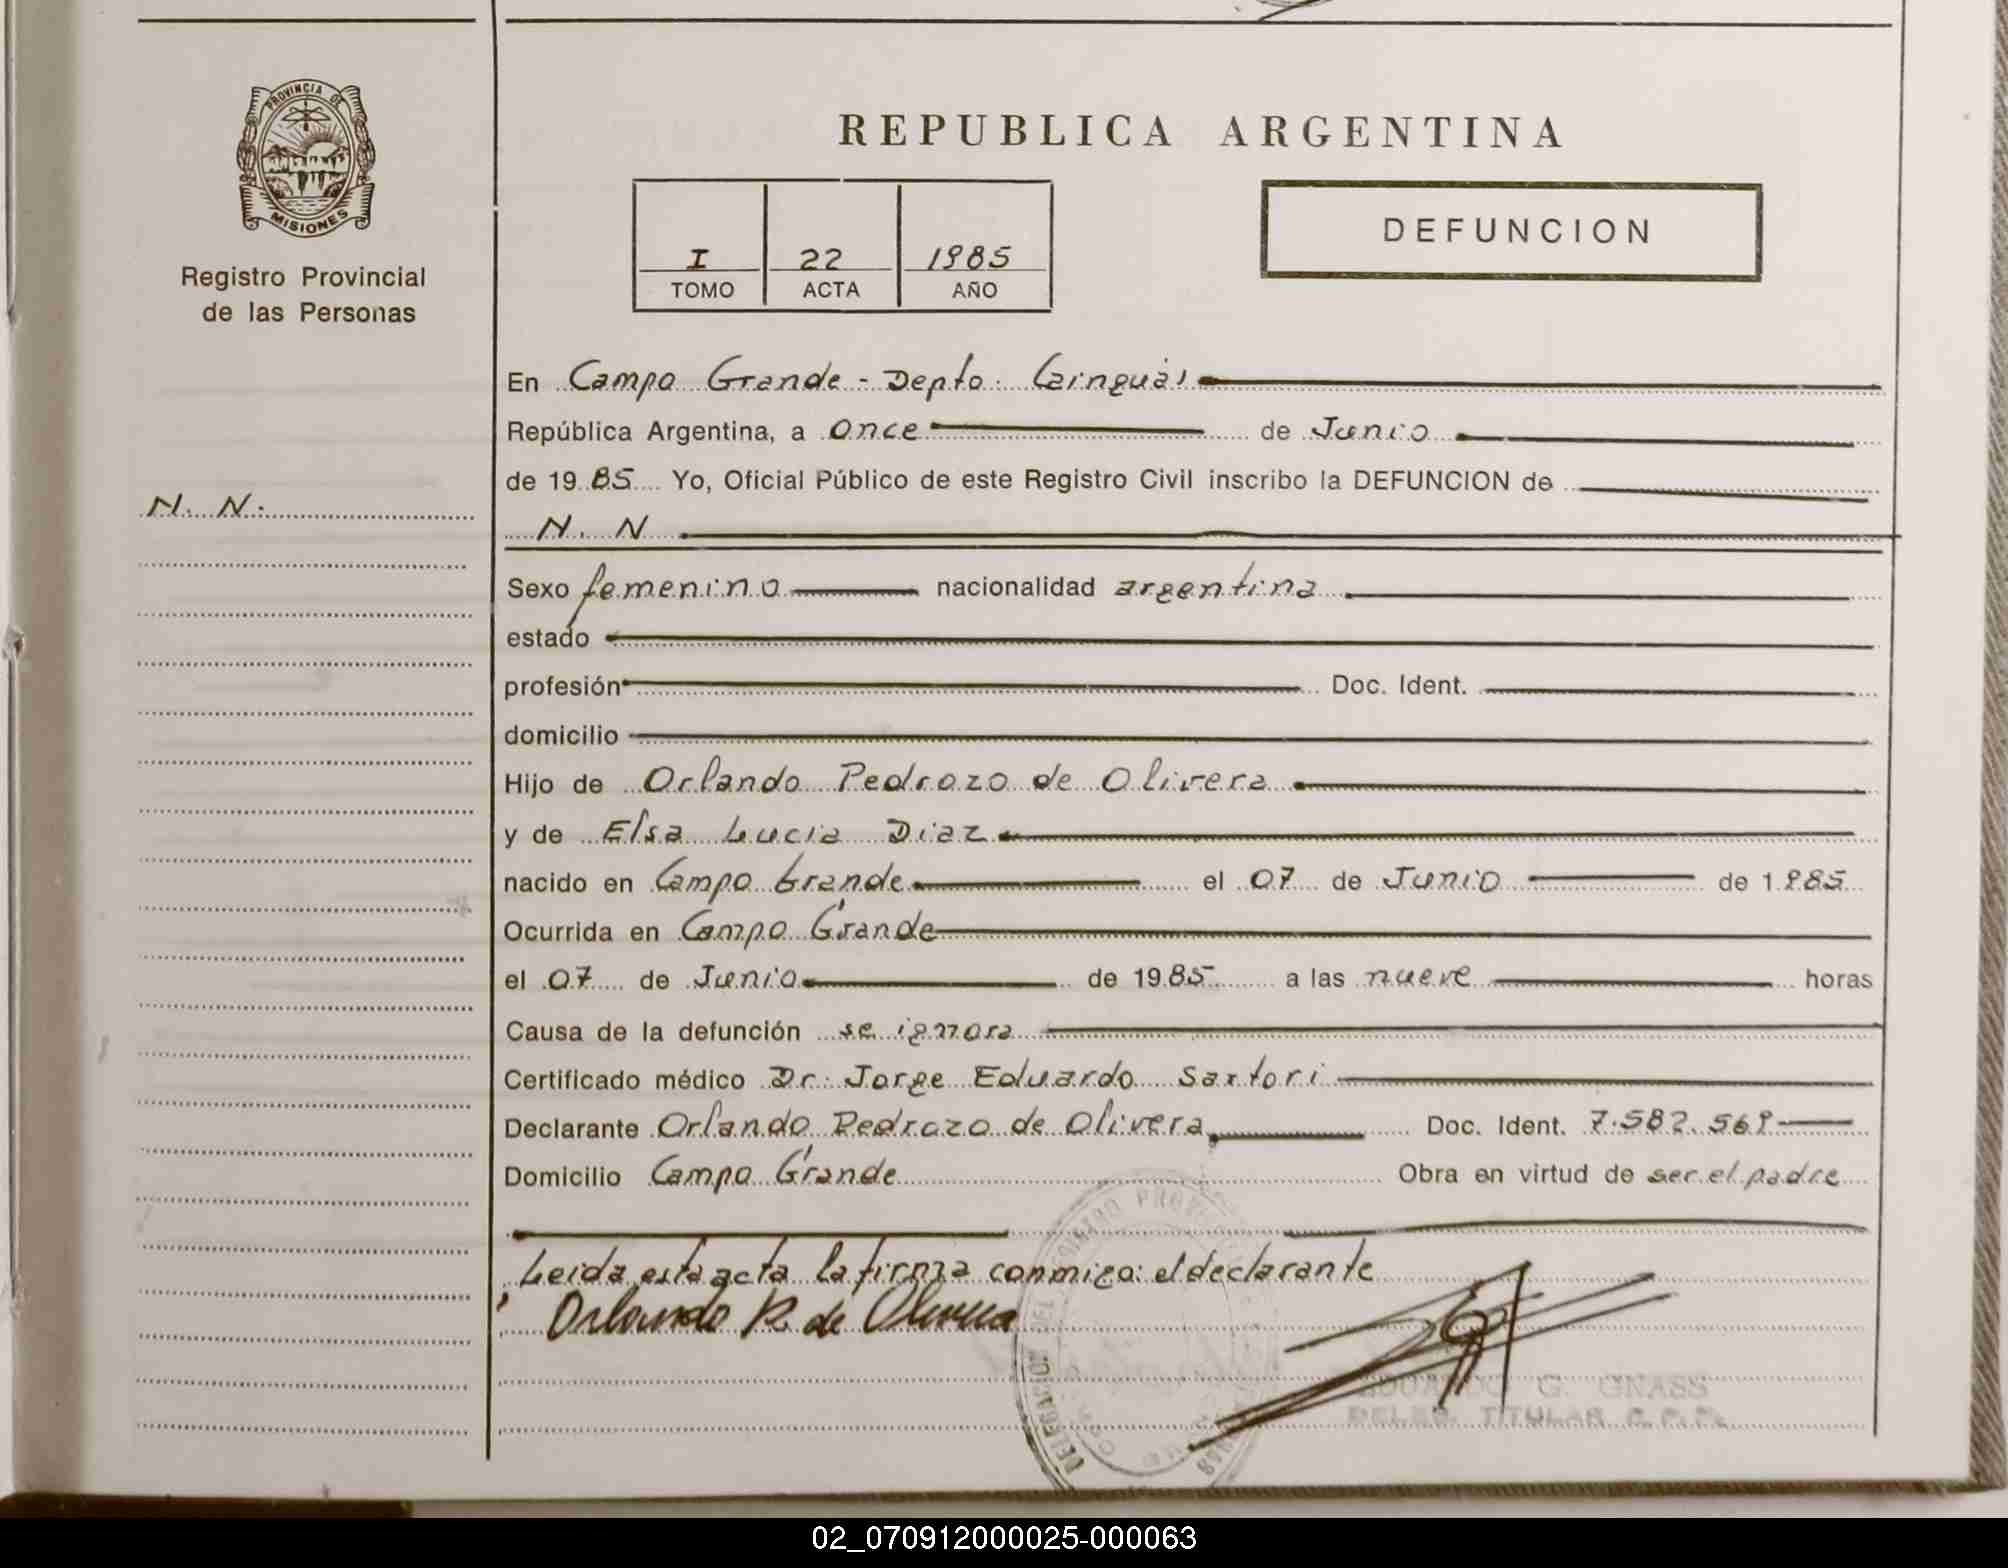 PROVINCIA DE
MISIONES
Registro Provincial
de las Personas
N. N.
REPUBLICA ARGENTINA
I 22 1985
TOMO ACTA AÑO
DEFUNCION
En Campo Grande - Depto. Cainguás
República Argentina, a once de Junio
de 1985 Yo, Oficial Público de este Registro Civil inscribo la DEFUNCION de
N. N
Sexo femenino nacionalidad argentina
estado
profesión Doc. Ident.
domicilio
Hijo de Orlando Pedrozo de Olivera
y de Elsa Lucia Diaz
nacido en Campo Grande el 07 de Junio de 1985
Ocurrida en Campo Grande
el 07 de Junio de 1985 a las nueve horas
Causa de la defunción se ignora
Certificado médico Dr. Jorge Eduardo Sartori
Declarante Orlando Pedrozo de Olivera Doc. Ident. 7.582.569
Domicilio Campo Grande Obra en virtud de ser el padre
Leida esta acta la firma conmigo: el declarante
Orlando P. de Olivera
EDUARDO G. GNASS
DELEG. TITULAR R.P.P.
02_070912000025-000063